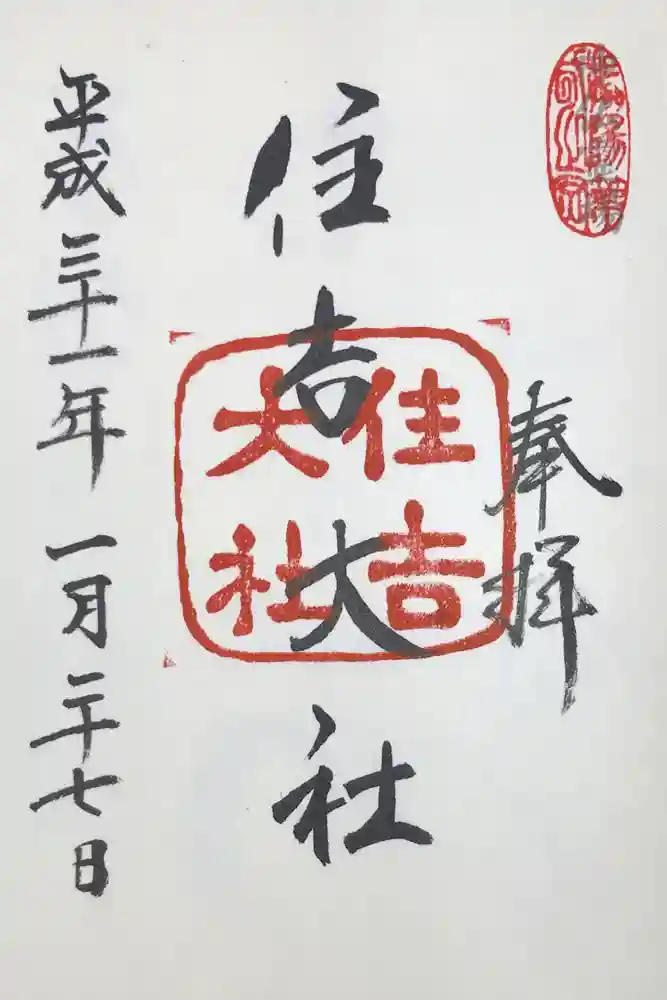 奉拝
住吉大社
住吉
大社
平成三十一年一月二十七日